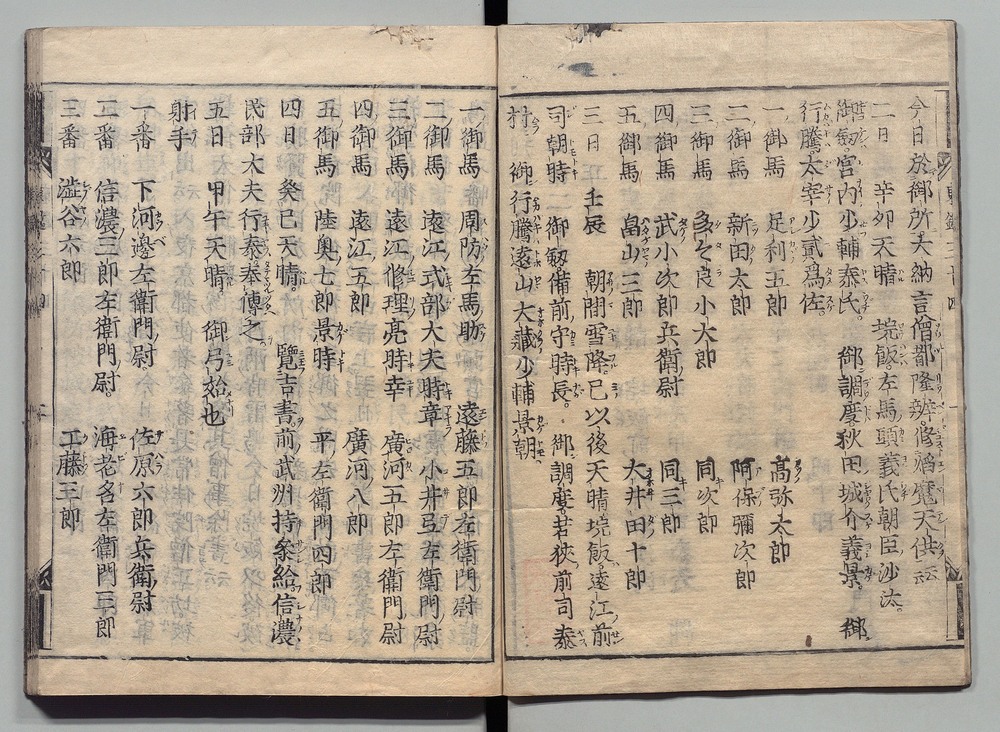 今日於御所大納言僧都隆辨。修焔魔天供云云
二日 辛卯天晴 垸飯。左馬頭義氏朝臣沙汰。
御剱宮內少輔泰氏。 御調度秋田城介義景。 御
行騰太宰少貳爲佐。
一御馬 足利五郎 高弥太郎
二御馬 新田太郎 阿保彌次郎
三御馬 多々良小太郎 同次郎
四御馬 武小次郎兵衛尉 同三郎
五御馬 畠山三郎 大井田十郎
三日 壬辰 朝間雪降巳以後天晴垸飯。遠江前
司朝時 御剱備前守時長。御調度若狹前司泰
村 御行騰遠山大藏少輔景朝。
一御馬 周防左馬助 遠藤五郎左衛門尉
二御馬 遠江式部大夫時章 小井弖左衛門尉
三御馬 遠江修理亮時幸 廣河五郎左衛門尉
四御馬 遠江五郎 廣河八郎
五御馬 陸奥七郎景時 平左衛門四郎
四日 癸巳天晴 覽吉書前武州持參給信濃
民部大夫行泰奉傳之。
五日 甲午天晴 御弓始也
射手
一番 下河邊左衛門尉 佐原六郎兵衛尉
二番 信濃三郎左衛門尉。 海老名左衛門三郎
三番 澁谷六郎 工藤三郎